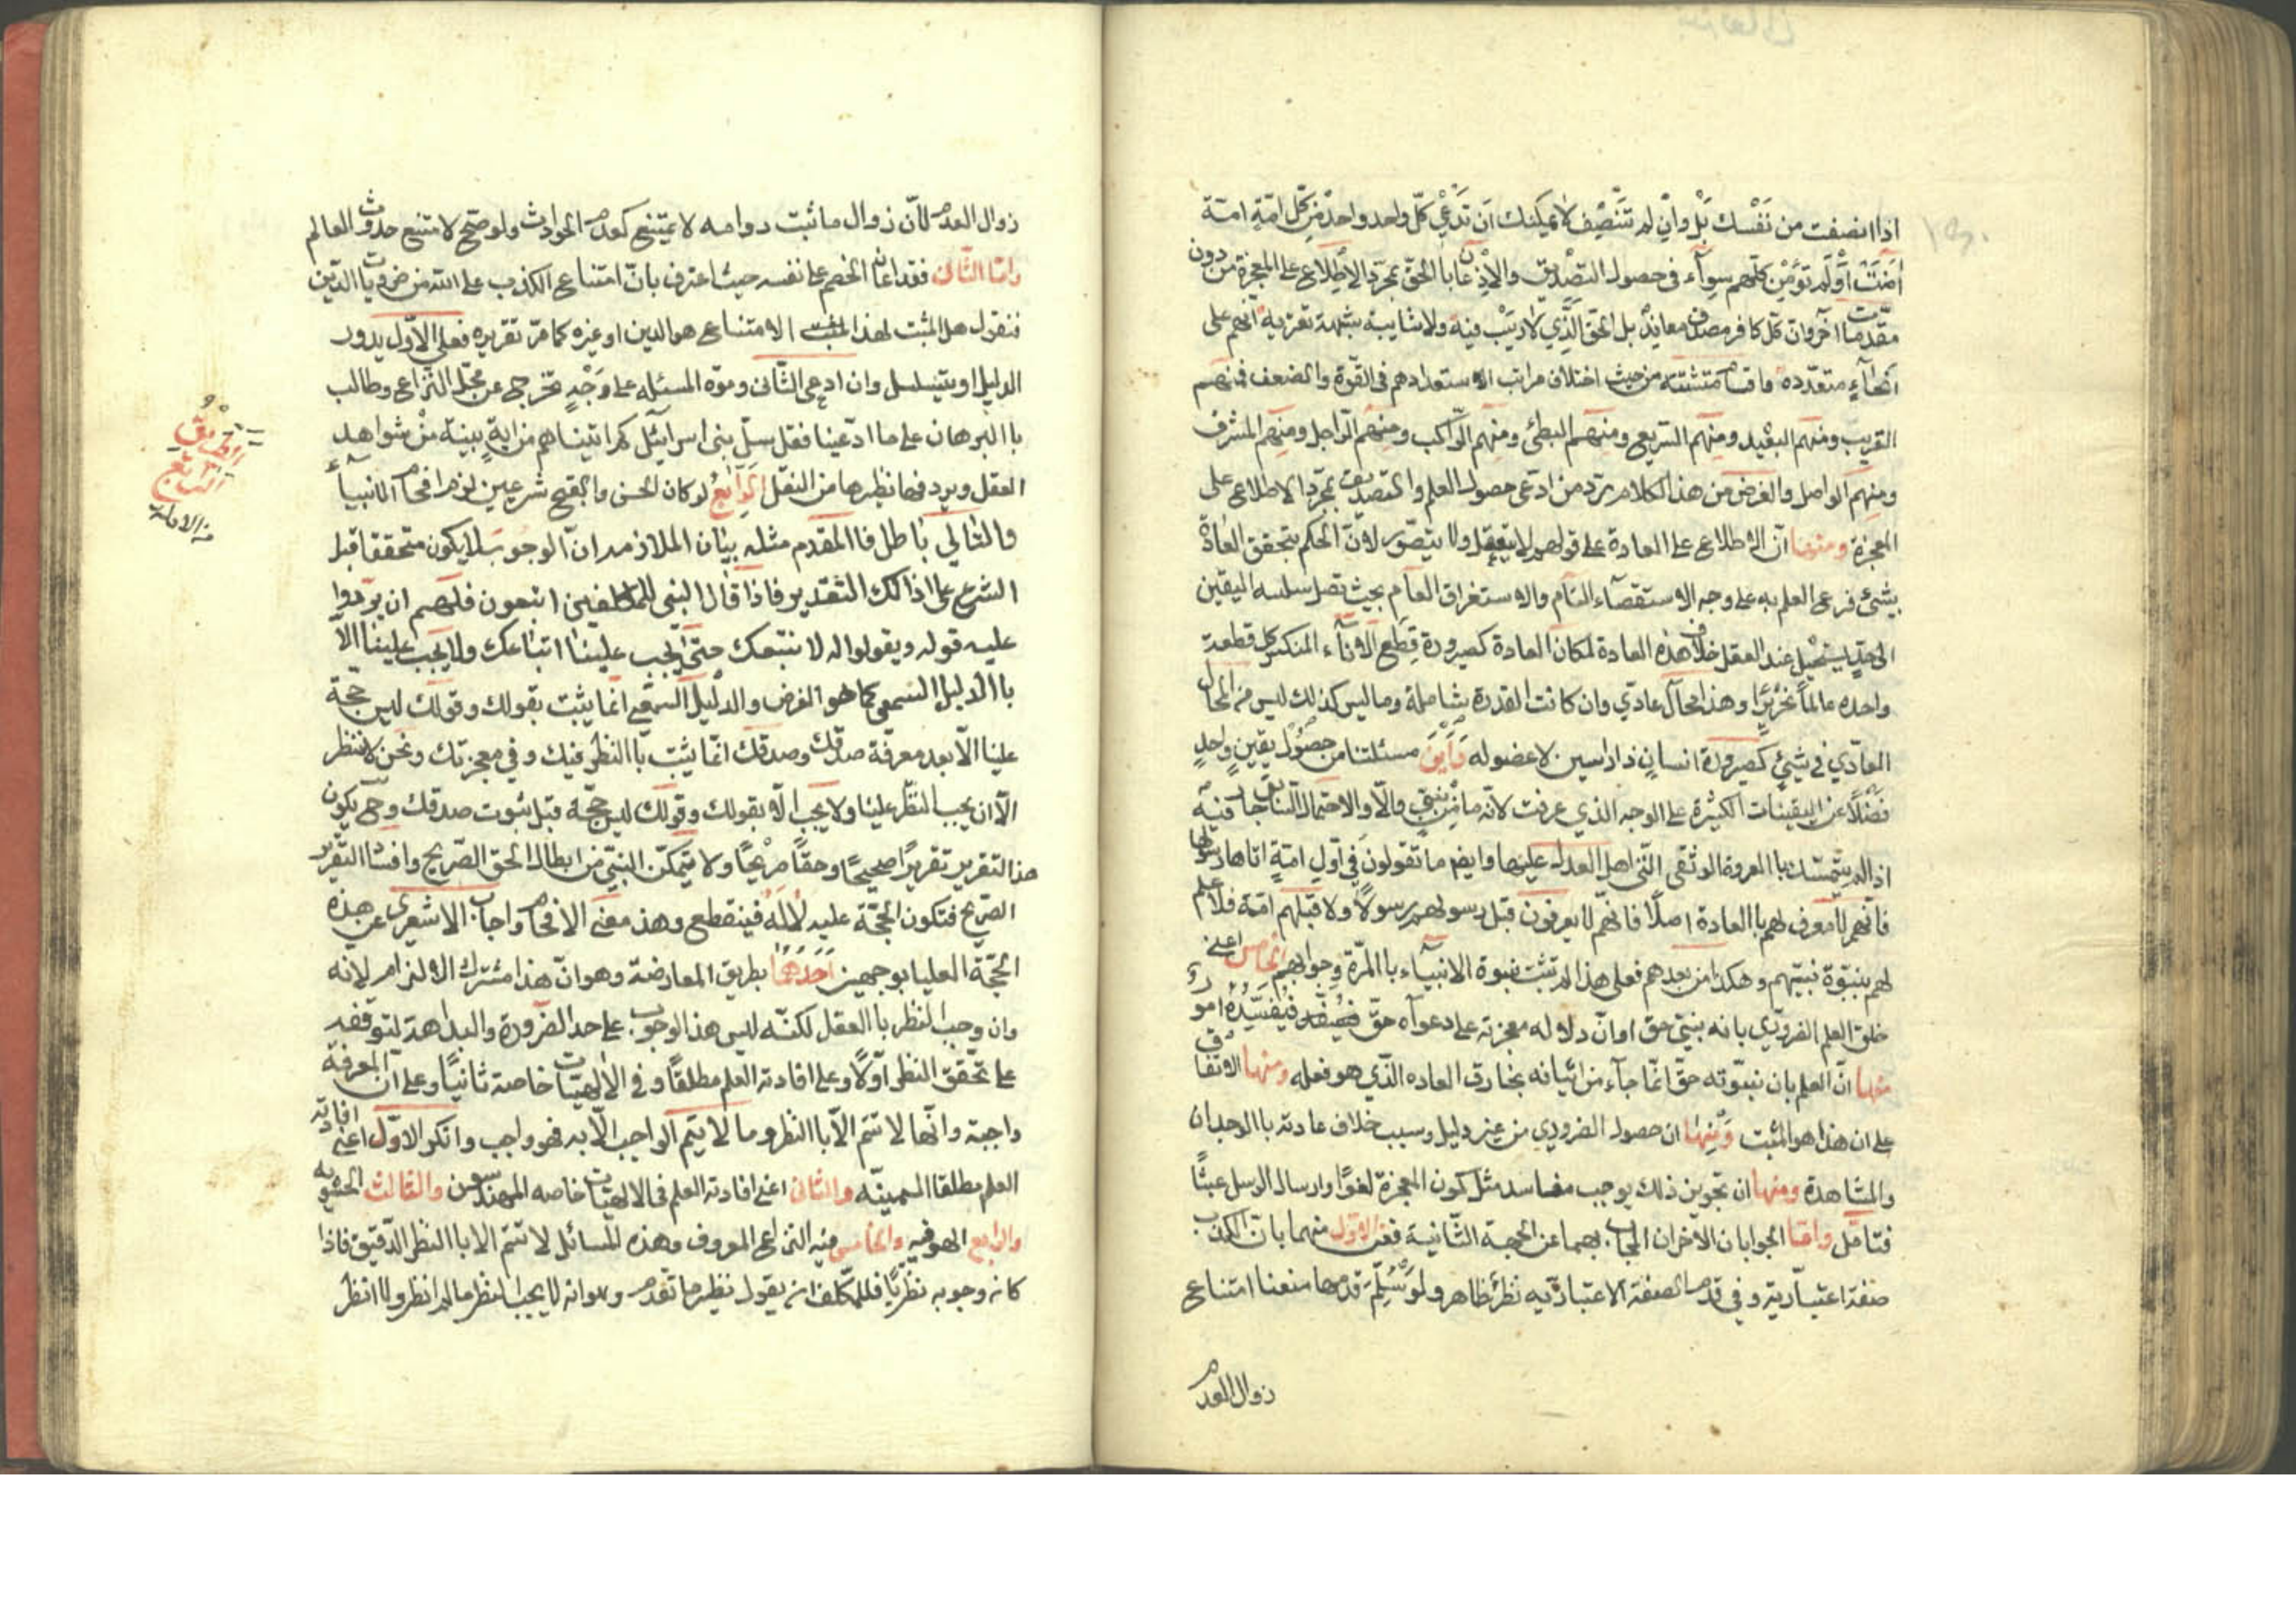 اذا انصفت من نَفْسك بَلْ وانْ لم تنصِف لا يمكنك ان تدّعي كلّ واحد واحد من كلّ امّةٍ امّة
اٰمَنَتْ اَوْ لَم تؤمِن كلّهم سوآء في حصول التصديق والاذعان باالحقّ بمجرّد الاطّلاع على المعجزة من دون
مقدّمات اخر وان كلّ كافر مصدق معاند بل الحق الّذي لا ريب فيه ولا شايبة شبهة تعتريه انّهم على
انحآءٍ متعدّده واقسام متشتّته من حيث اختلاف مراتب الاستعدادهم في القوّة والضعف فمنهم
القريب ومنهم البعيد ومنهم السريع ومنهم البطئ ومنهم الراكب ومنهم الراجل ومنهم المشرف
ومنهم الواصل والغرض من هذا الكلام ردّ من ادّعى حصول العلم والتصديق بمجرّد الاطلاع على
المعجزة ومنها انّ الاطلاع على العادة على قولهم لا يتعقل ولا يتصوّر لانّ الحكم بتحقق العادة
بشئ فرع العلم به على وجه الاستقصآء التام والاستغراق العام بحيث تصل سلسه اليقين
الى حدّ يستحيل عند العقل خلاف هذه العادة لمكان العادة كصيرورة قِطَع الاناء المنكسر كل قطعة
واحده عالماً نحريرًا وهذا محال عاديّ وان كانت القدرة شاملة وما ليس كذلك ليس من المحال
العادّي في شئٍ كصيرورة انسانٍ ذا راسين لا عضوله وَاَيْنَ مسئلتنا من حصُول يقينٍ واحدٍ
فضلًا عن اليقينات الكثيرة على الوجه الذي عرفت لانّه ما من نبيّ والّا والاحتمالات جا فيه
اذا لم يتمسّك باالعروة الوثقى الّتى اهل العدل عليها وايضا ما تقولون في اول امّةٍ اتاها رسولها
فانّهم لا معرف لهم باالعادة اصلًا فانهم لا يعرفون قبل رسولهم رسولًا ولا قبلهم امّة فلا علم
لهم بنبوّة نبيّهم وهكذا من بعدهم فعلى هذا لم تثبت نبوة الانبيآء باالمرّة وجوابهم الخامس اعنى
خلق العلم الضروريّ بانه نبيّ حق او انّ دلاله معجزته على دعواه حقّ فيفسّده امور
منها انّ العلم بان نبوّته حقّ انّما جآء من اتيانه بخارق العاده الّذي هو فعله ومنها الاتفاق
على ان هذا هو المثبت وَمِنها ان حصول الضروري من غير دليل وسبب خلاف عادته باالوجدان
والمشاهدة ومنها ان تجويز ذلك يوجب مفاسد مثل كون المعجزة لغوًا وارسال الرسل عبثًا
فتامّل وامّا الجوابان الاخران المجاب بهما عن الحجة الثانية ففى الاوّل منهما بان الكذب
صفة اعتباريّة وفي قدم الصفة الاعتباريّه نظرٌ ظاهر ولو سُلِّمَ قدمها منعنا امتناع
زوال العدم
زوال العدم لانّ زوال ما ثبت دوامه لا يمتنع كعدم الحوادث ولو صحّ لامتنع حدوث العالم
وامّا الثانى فقد اعان الخصم على نفسه حيث اعترف بانّ امتناع الكذب على الله من ضروريات الدّين
فنقول هل المثبت لهذا الامتناع هو الدين او غيره كما مرّ تقريره فعلى الاوّل يدور
الدليل او يتسلسل وان ادعى الثّانى وموّه المسئله على وَجْهٍ تخرج عن محلّ النّزاع وطالب
باالبرهان على ما ادّعينا فقل سل بنى اسرايئل كم اتيناهم من ايةٍ بينة من شواهد
العقل ويردفها نظيرها من النقل الرّابع لو كان الحسن والقبح شرعيين لزم افحام الانبيآء
والتالي باطل فاالمقدم مثله بيان الملازمه ان الوجوب لا يكون متحققا قبل
الشرع على ذالك التقدير فاذا قال النبى للمكلفين اتبعون فلهم ان يردوا
عليه قوله ويقولوا له لا نتبعك حتّى يجب علينا اتباعك ولا يجب علينا الّا
باالدليل السمعى كما هو الفرض والدليل السّمعى انّما يثبت بقولك وقولك ليس حجّة
علينا الّا بعد معرفة صدقك وصدقك انّما يثبت باالنظر فيك وفي معجزتك ونحن لا ننظر
الّا ان يجب النظر علينا ولا يجب الّا بقولك وقولك ليس حجّة قبل ثبوت صدقك وح يكون
هذا التقرير تقريرًا صحيحًا وحقًا صريحًا ولا يتمكّن النبىّ من ابطال الحق الصّريح وافشا التقرير
الصريح فتكون الحجّة عليه لا لَه فينقطع وهذا معنى الافحام واجاب الاشعري عن هذه
الحجّة العليا بوجهين اَحَدَهُما بطريق المعارضة وهو انّ هذا مشترك الالزام لانه
وان وجب النظر باالعقل لكنّه ليس هذا الوجوب على حد الضرورة والبداهة لتوقفه
على تحقّق النظر اوّلًا وعلى افادته العلم مطلقًا وفي الالهيّات خاصة ثانيًا وعلى ان المعرفة
واجبة وانّها لا تتم الّا باالنظر وما لا يتم الواجب الّا به فهو واجب وانكر الاوّل اعنى افادته
العلم مطلقا السمينّه والثانى اعنى افادته العلم فى الالهيّات خاصه المهندسون والثالث الحشويه
والرابع الصوفيه والخامس فيه النزاع المعروف وهذه المسائل لا تتمّ الا باالنظر الدقيق فاذا
كانه وجوبه نظريًا فللمكلف ان يقول نظير ما تقدم وهو انه لا يجب النظر ما لم انظر ولا انظر
الطريق
الرابع
من الادلة